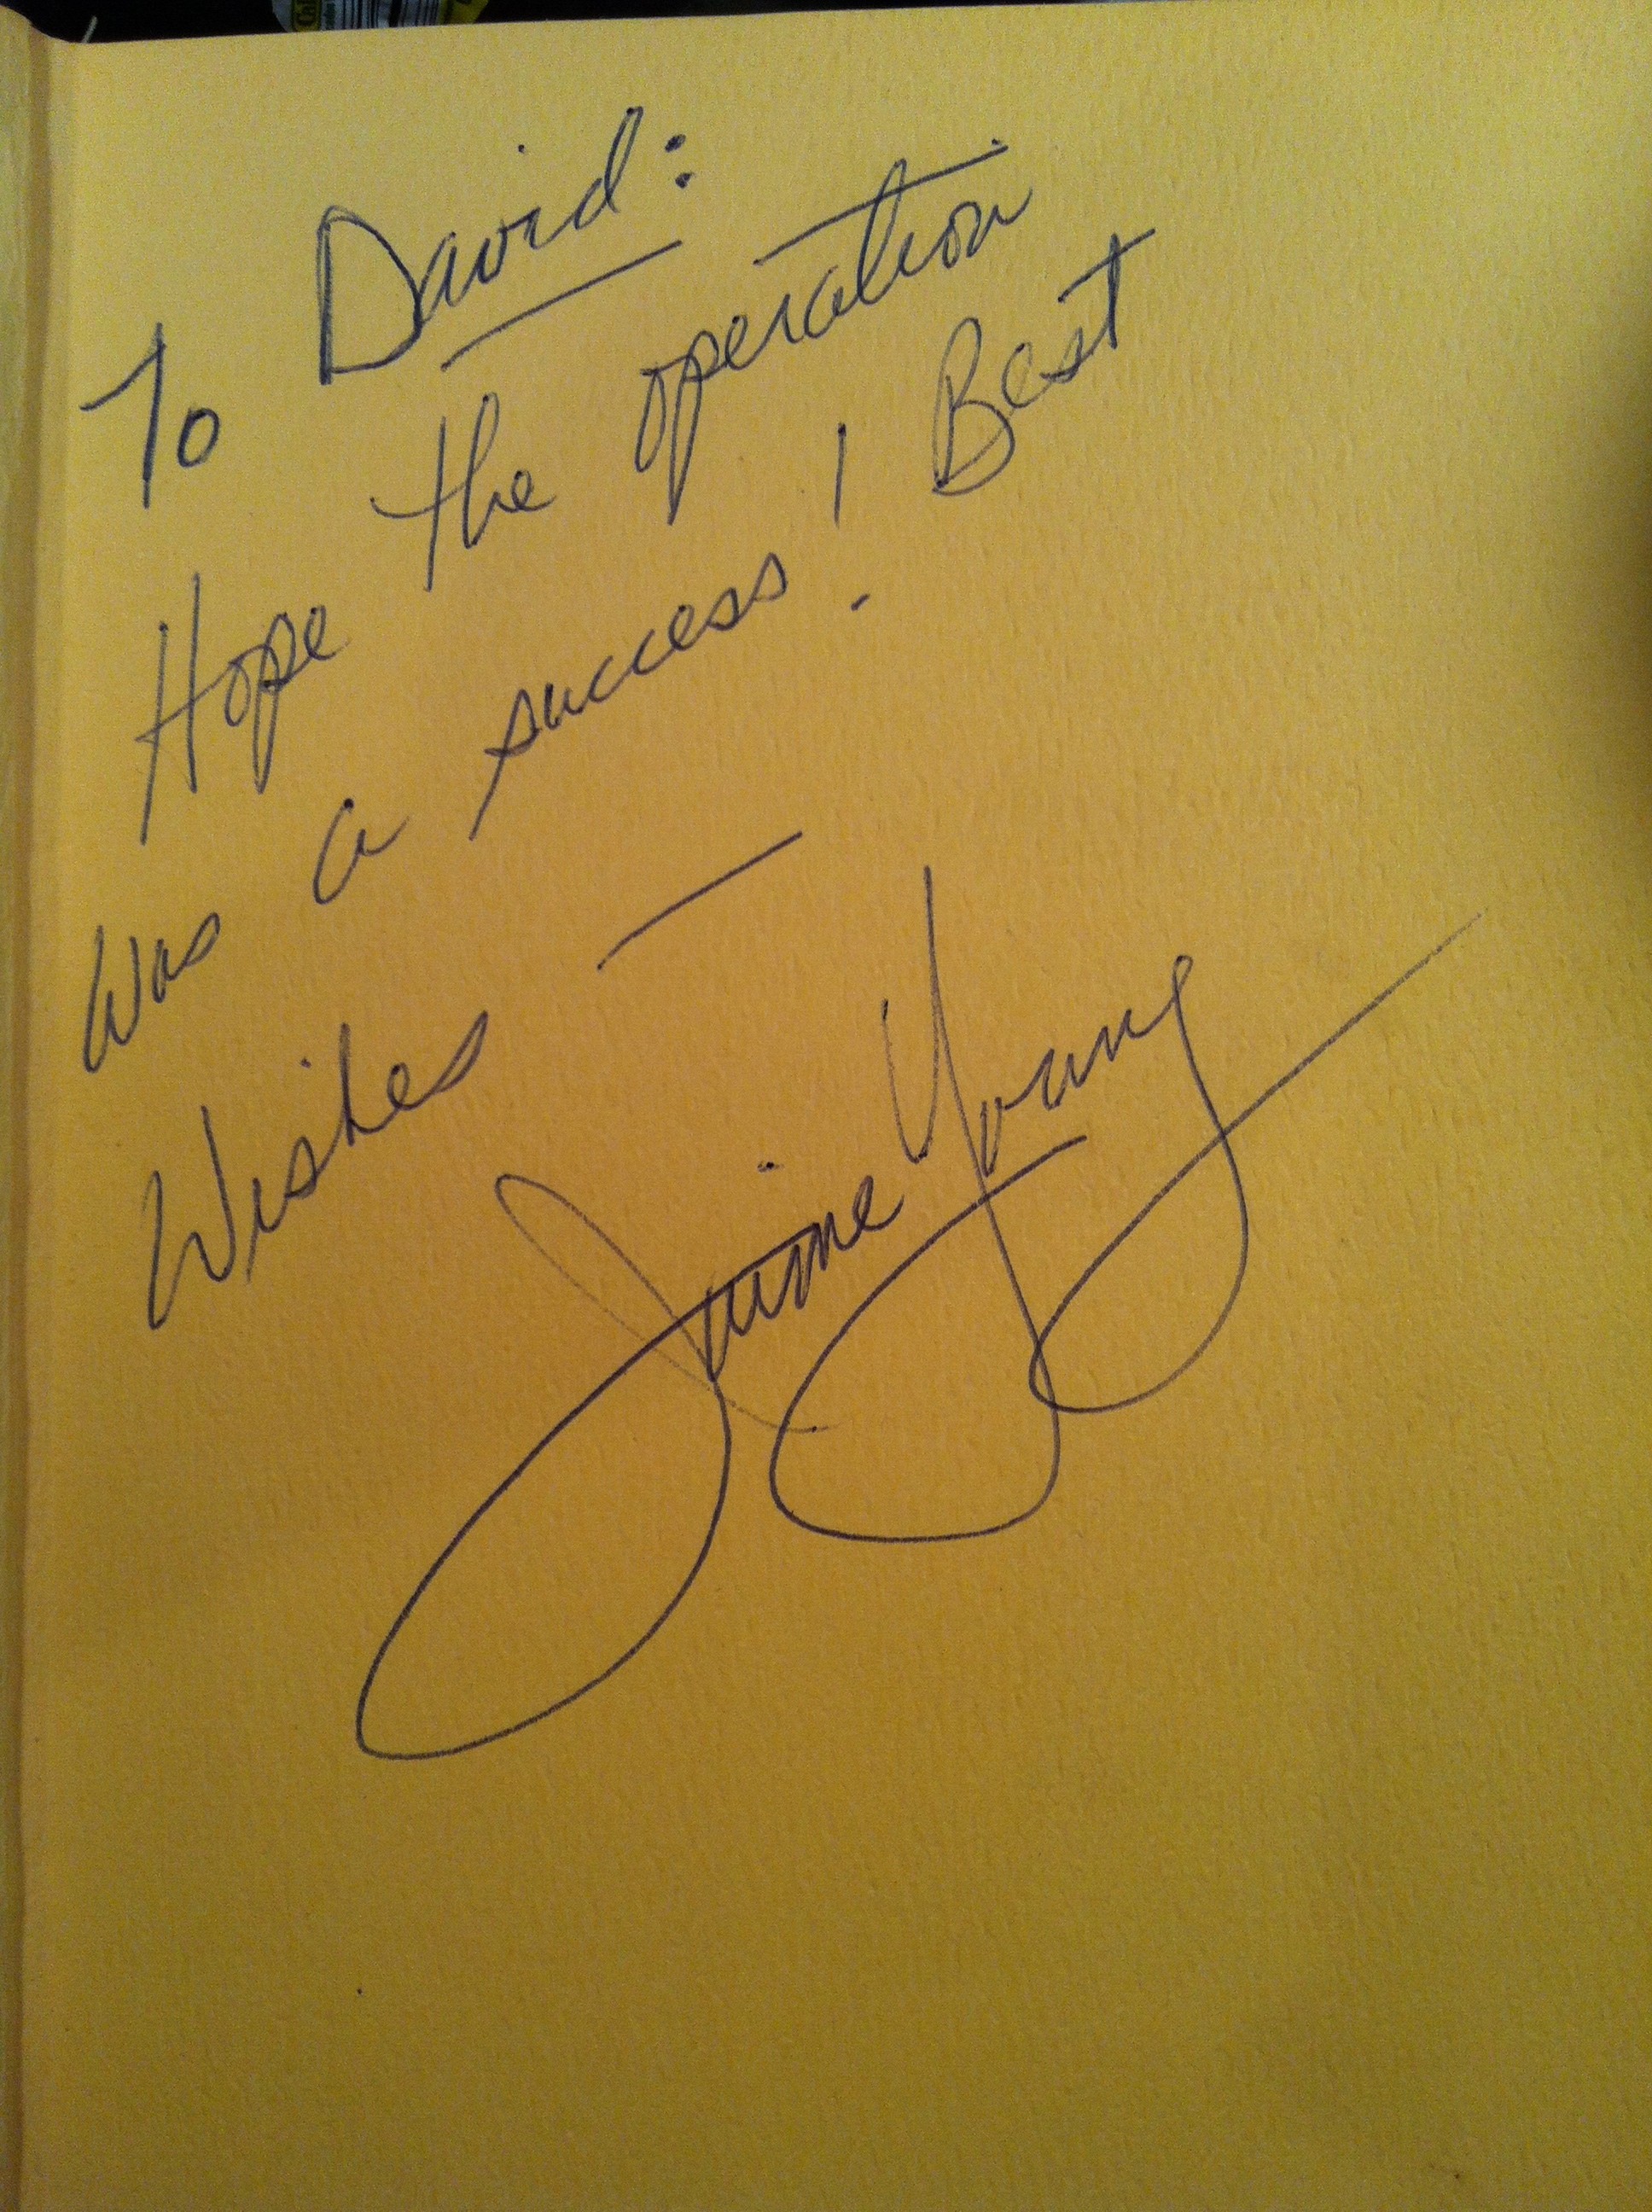 To David:
Hope the operation
was a success! Best
Wishes —
Jaime Young